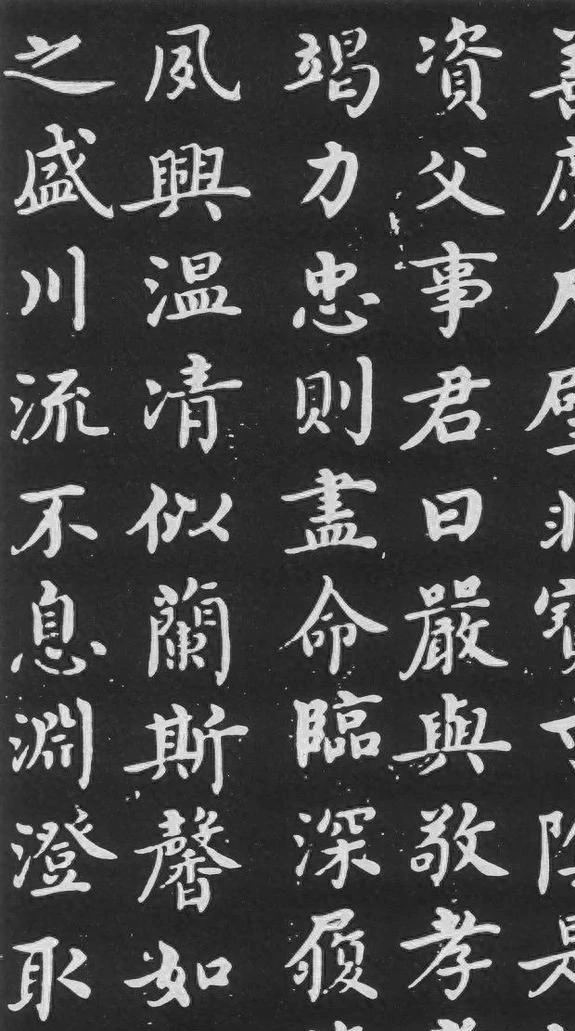 資父事君曰嚴與敬孝
竭力忠則盡命臨深履
夙興温凊似蘭斯馨如
之盛川流不息淵澄取